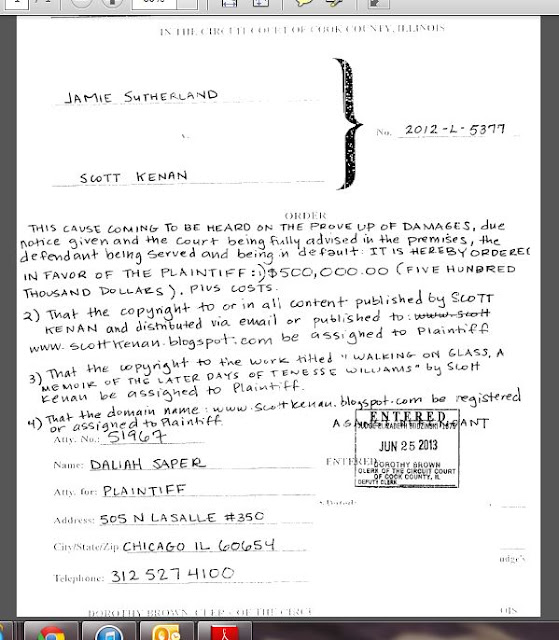 IN THE CIRCUIT COURT OF COOK COUNTY, ILLINOIS
JAMIE SUTHERLAND
v.
No. 2012-L-5377
SCOTT KENAN
ORDER
THIS CAUSE COMING TO BE HEARD ON THE PROVE UP OF DAMAGES, due
notice given and the Court being fully advised in the premises, the
defendant being served and being in default: IT IS HEREBY ORDERED
IN FAVOR OF THE PLAINTIFF: 1) $500,000.00 (FIVE HUNDRED
THOUSAND DOLLARS), plus costs.
2) That the copyright to or in all content published by SCOTT
KENAN and distributed via email or published to: www.scott
www.scottkenan.blogspot.com be assigned to Plaintiff
3) That the copyright to the work titled "WALKING ON GLASS, A
MEMOIR OF THE LATER DAYS OF TENESSE WILLIAMS" by Scott
Kenan be assigned to Plaintiff.
4) That the domain name: www.scottkenan.blogspot.com be registered
or assigned to Plaintiff
Atty. No.: 51967
ENTERED
JUN 25 2013
DOROTHY BROWN
CLERK OF THE CIRCUIT COURT
OF COOK COUNTY, IL
DEPUTY CLERK
Name: DALIAH SAPER
ENTERED
Atty. for: PLAINTIFF
Dated:
Address: 505 N LASALLE #350
City/State/Zip CHICAGO IL 60654
Telephone: 312 527 4100